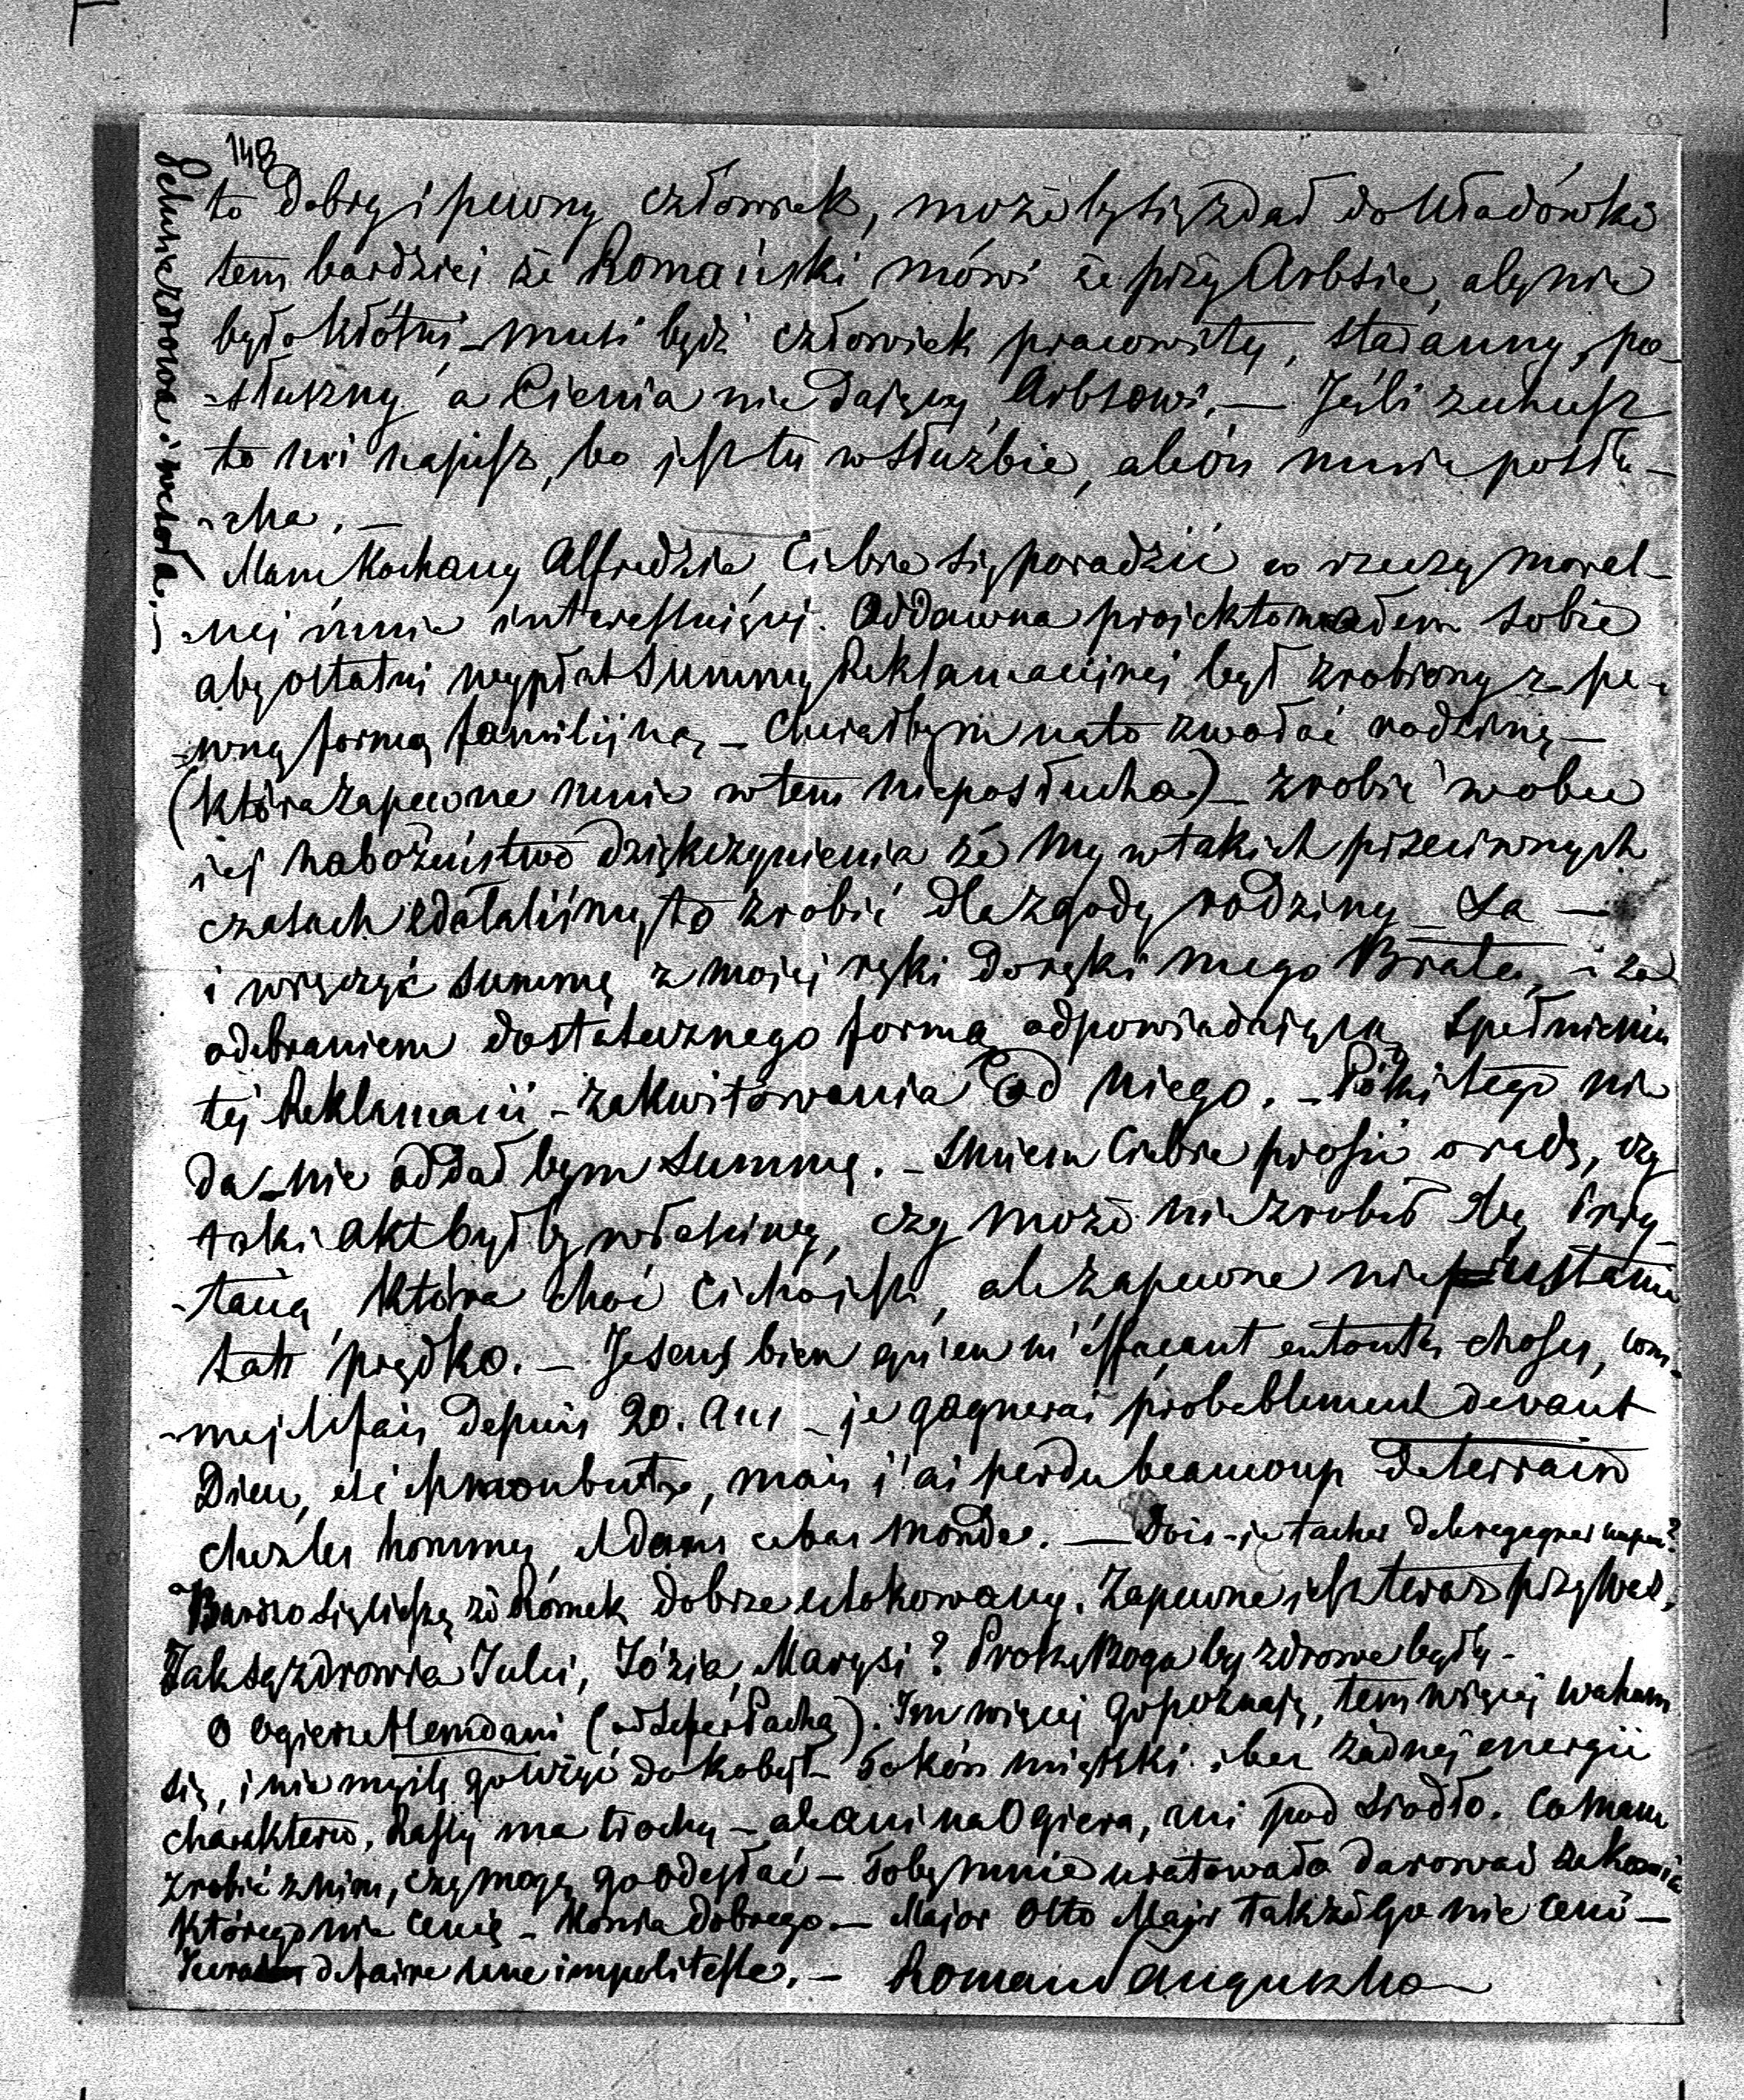 148
to dobry i pewny człowiek, możeby się zdał do Uładówki
tem bardziej że Romański mówi że przy Arbsie, aby nie
było kłótni – musi być człowiek pracowity, staranny, po-
-słuszny a Cienia nie dający Arbsowi. – Jeśli zechcesz
to mi napisz, bo jest tu w służbie, ale on mnie posłu-
-cha. –
Mam Kochany Alfredzie, Ciebie się poradzić w rzeczy moral-
-nej mnie interessującej. Oddawna projektowałem sobie
aby ostatni wypłat Summy Reklamacijnej był zrobiony z pe-
-wną formą familijną – Chciałbym nato zwołać rodzinę –
(która zapewne mnie w tem nieposłucha) – zrobić wobec
jej nabożeństwo dziękczynienia że my w takich przeciwnych
czasach zdołaliśmy to zrobić dla zgody rodziny –
i wręczyć summę z mojej ręki do ręki mego Brata, i za
odebraniem dostatecznego formą odpowiadającą spełnieniu
tej Reklamacii – zakwitowania od niego. – Póki tego nie
da – nie oddał bym Summy. – Śmiem Ciebie prosić o radę, czy
taki akt byłby właściwy, czy może nie zrobić by
która choć cicho jest, ale zapewne nie ustanie
tak prędko. – Je sens bien qu'en m'effaçant en toutes choses, com-
-me je le fais depuis 20. ans – je gagnerai probablement devant
Dieu, et c'est mon but, mais j'ai perdu beaucoup de terrain
chez les hommes, et dans ce bas monde. – Dois-je tacher de le regagner un peu?
Bardzo się cieszę że Romek dobrze ulokowany. Zapewne jest teraz przy Was,
Jak są zdrowia Julii, Józia, Marysi? Proszę Boga by zdrowe były –
O ogierze Hemdani (od Sefer Paszy). Im więcej go poznaję, tem więcej waham
się, i nie myślę go użyć do kobył – To koń miętki i bez żadnej energii
charakteru, Rassy ma trochę – ale ani na Ogiera, ani pod siodło. Co mam
zrobić z nim, czy mogę go odesłać – Toby mnie uratowało darować za konia
którego nie cenię – konia dobrego – Major Otto Majr także go nie ceni –
de faire une impolitesse. – Roman Sanguszko
zdrowa i wesoła. –